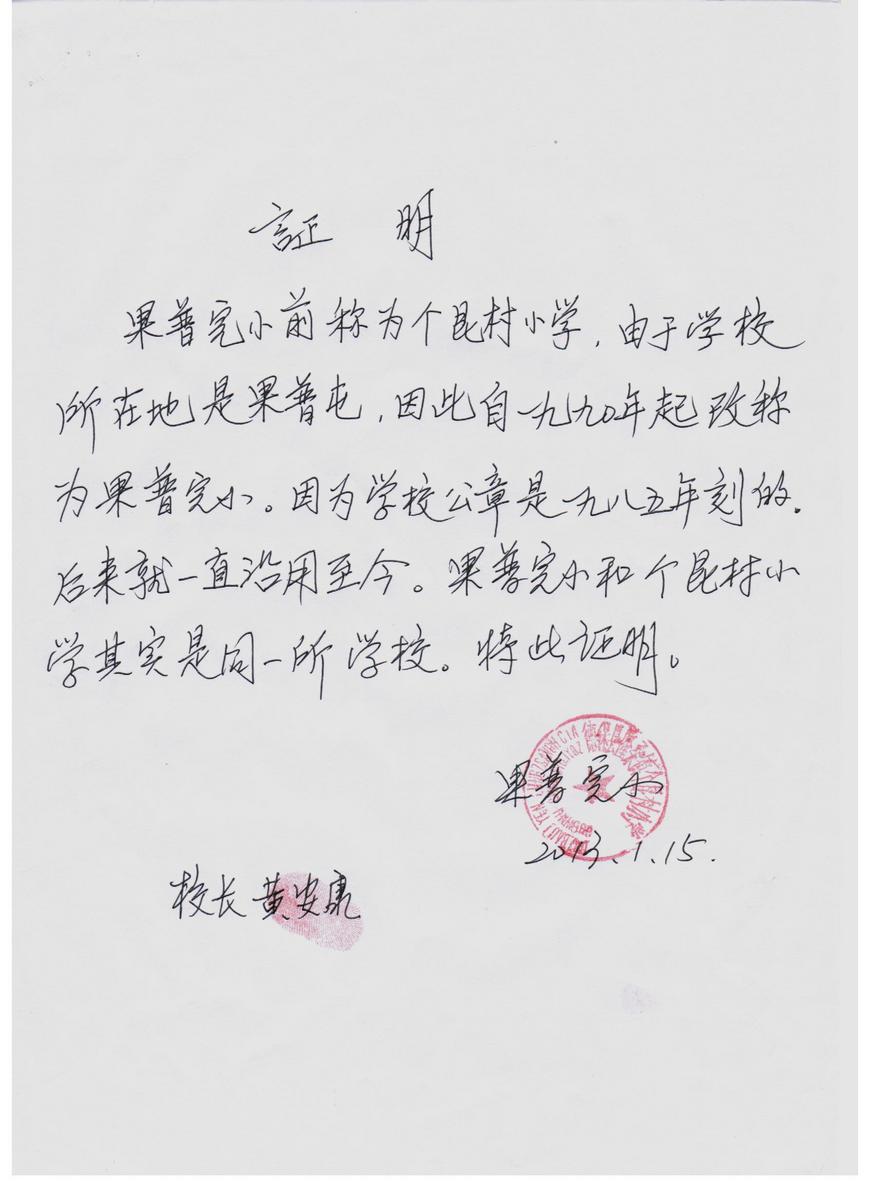 証 明
果普完小前称为个昆村小学，由于学校
所在地是果普屯，因此自一九九0年起改称
为果普完小。因为学校公章是一九八五年刻的．
后来就一直沿用至今。果普完小和个昆村小
学其实是同一所学校。特此证明。
果普完小
2013.1.15.
校长黄安康